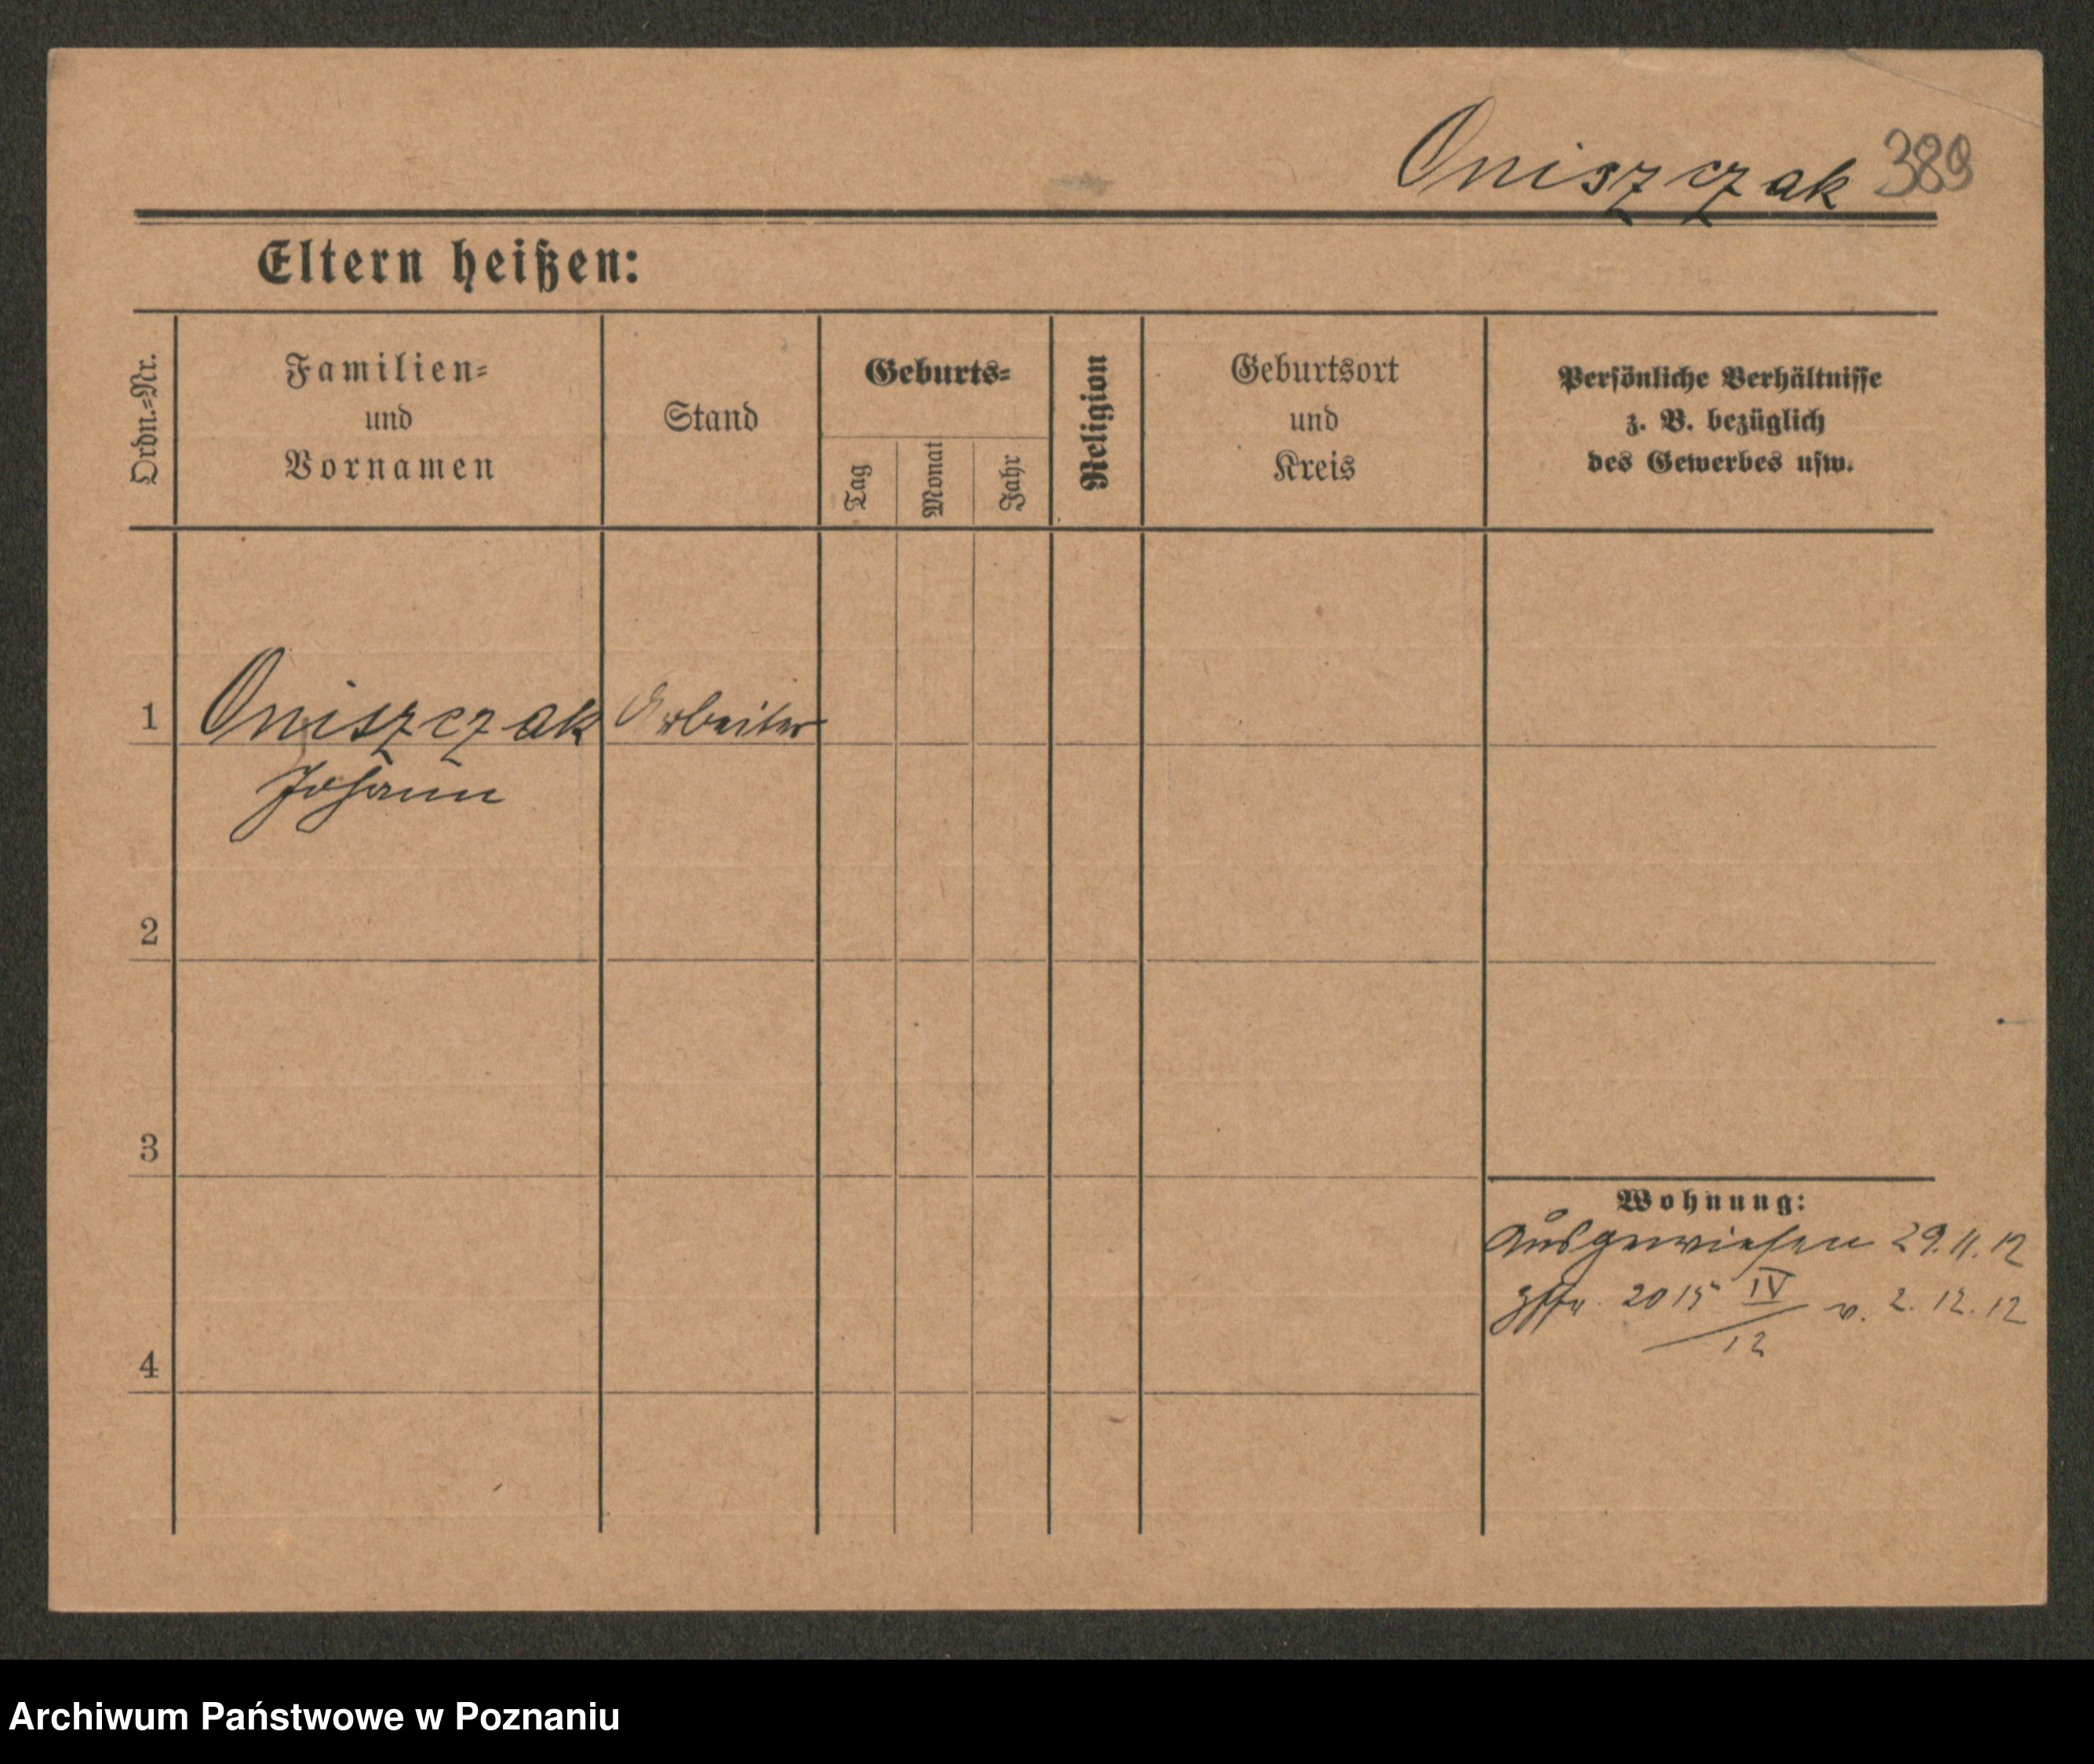 Oniszczak 389
Eltern heißen:
Ordn.=Nr.
Familien=
und
Vornamen
Stand
Geburts=
Tag
Monat
Jahr
Religion
Geburtsort
und
Kreis
Persönliche Verhältnisse
z. B. bezüglich
des Gewerbes usw.
1 Oniszczak Arbeiter
Johann
2
3
Wohnung:
Ausgewiesen 29.11.12
2015 IV v. 2.12.12
12
4
Archiwum Państwowe w Poznaniu